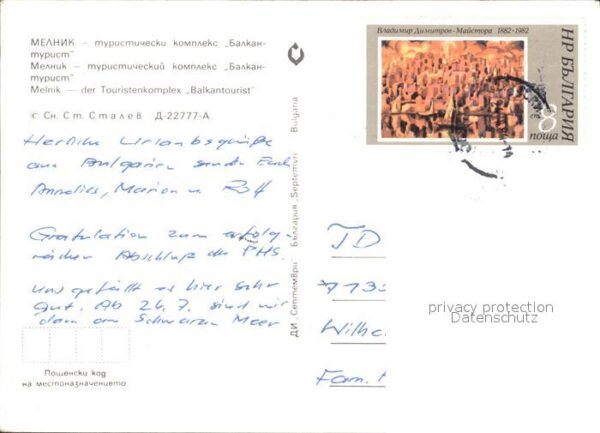 МЕЛНИК – туристически комплекс „Балкан-
турист"
Мелник – туристический комплекс „Балкан-
турист"
Melnik – der Touristenkomplex „Balkantourist"
© Сн. Ст. Сталев Д-22777-А
Herzliche Urlaubsgrüße
aus Bulgarien senden Euch
Annelies, Marion u. Rolf
Gratulation zum erfolg-
reichen Abschluß der PHS.
Uns gefällt es hier sehr
gut. Ab 26.7. sind wir
dann am Schwarzen Meer
Пощенски код
на местоназначението
ДИ „Септември" България „Septemvri" Bulgaria
Владимир Димитров-Майстора 1882-1982
НР БЪЛГАРИЯ
8
ст.
поща
JD
Wilhe
Fam.
privacy protection
Datenschutz